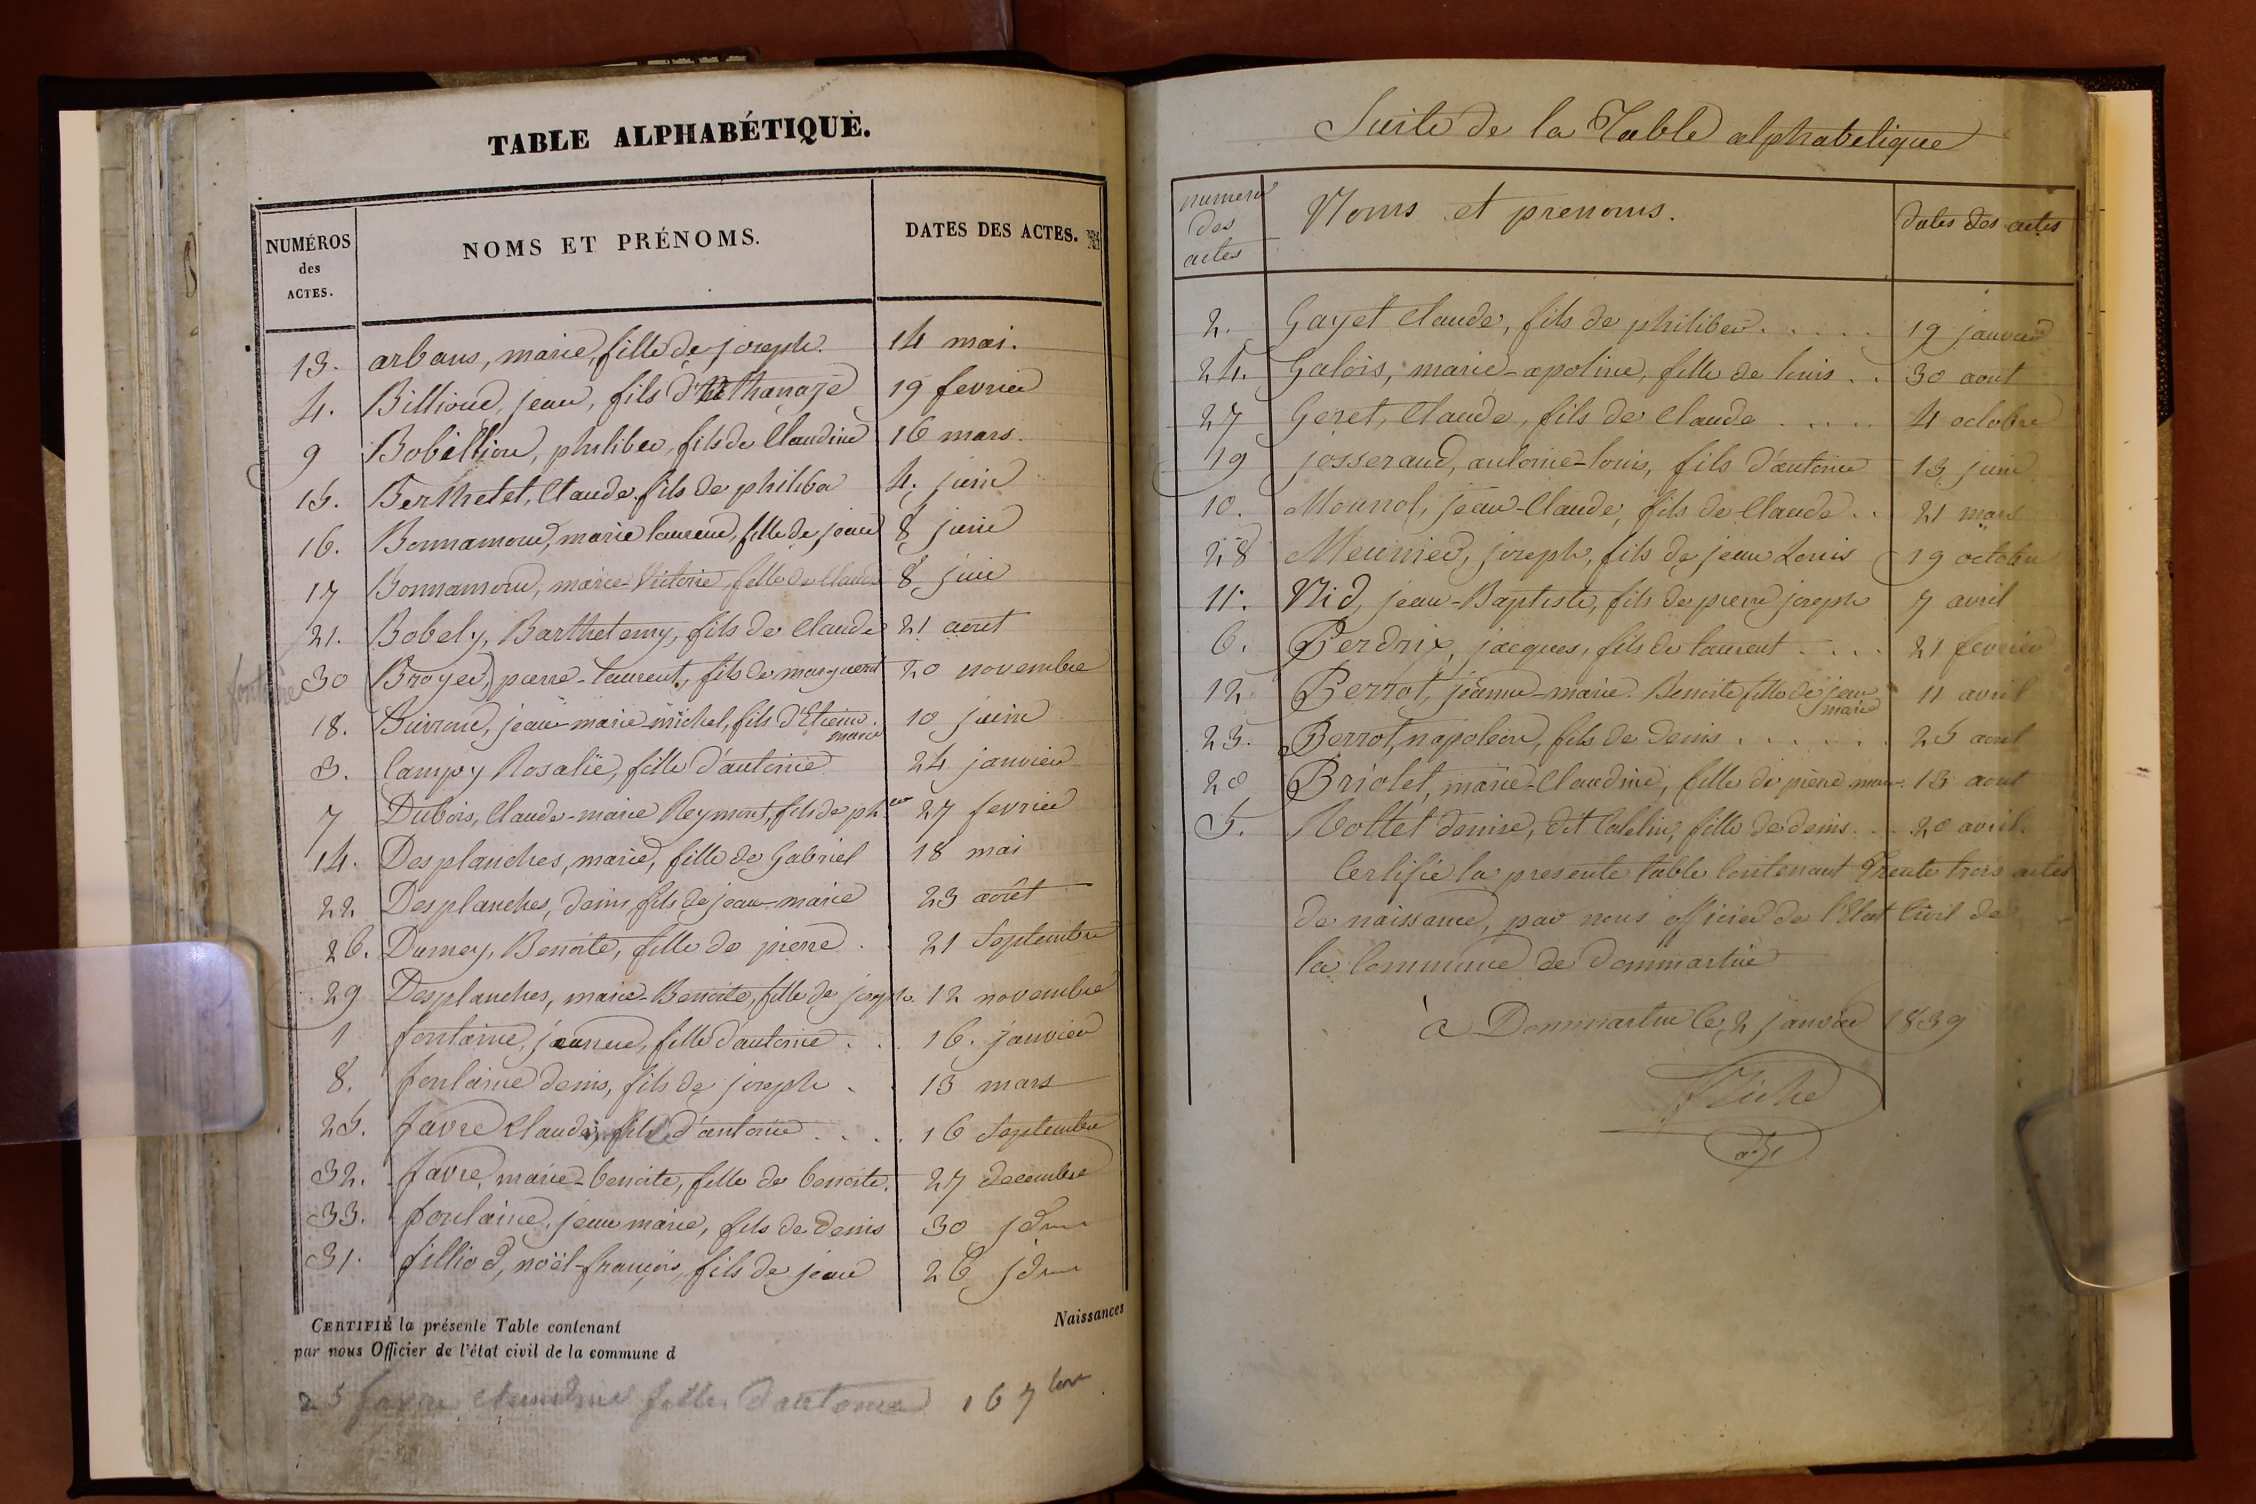 TABLE ALPHABÉTIQUE.
NUMÉROS
des
ACTES.
NOMS ET PRÉNOMS.
DATES DES ACTES.
13. arbans, marie, fille de joseph. 14 mai.
4. Billioud, jean, fils d'Athanaze 19 fevrier
9 Bobillion, philiber, fils de Claudine 16 mars.
15. Berthelet, Claude, fils de philiber 4. juin
16. Bonnamour, marie laurence, fille de jean 8 juin
17 Bonnamour, marie-Victoire, fille de Claude 8 juin
21. Bobely, Barthelemy, fils de Claude 21 aout
fontaine 30 Broyer, pierre-laurent, fils de marguerit 20 novembre
18. Buirron, jean-marie michel, fils d'Etienne. marie 10 juin
3. Campy Rosalie, fille d'antoine 24 janvier
7 Dubois, Claude-marie Reymont, fils de ph.ber 27 fevrier
14. Desplanches, marie, fille de Gabriel 18 mai
22 Desplanches, denis, fils de jean-marie 23 aout
26. Damey, Benoite, fille de pierre. 21 Septembre
29 Desplanches, marie-Benoite, fille de joseph. 12 novembre
1 fontaine, jeanne, fille d'antoine . . 16. janvier
8. fontaine denis, fils de joseph . 13 mars
25. favre Claudine, fille d'antoine . . . . 16 Septembre
32. favre, marie-benoite, fille de benoite. 27 decembre
33. fontaine, jean marie, fils de denis 30 idem
31. filliod, noël-françois, fils de jean 26 idem
CERTIFIÉ la présente Table contenant Naissances
par nous Officier de l'état civil de la commune d
25 favre claudine fille d'antoine 16 7bre
Suite de la Table alphabetique
numero
des
actes
Noms et prenoms.
dates des actes
2. Gayet Claude, fils de philiber. . . . . 19 janvier
24. Galois, marie-apoline, fille de louis . . 30 aout
27 Geret, Claude, fils de Claude . . . . . 4 octobre
19 josserand, antoine-louis, fils d'antoine 13 juin
10. Mounol, jean-Claude, fils de Claude . . 21 mars
28 Meunier, joseph, fils de jean Louis 19 octobre
11. Nid, jean-Baptiste, fils de pierre joseph 7 avril
6. Perdrix, jacques, fils de laurent . . . . 21 fevrier
12. Perrot, jeanne-marie. Benoite fille de jean marie 11 avril
23. Perrot, napoleon, fils de denis . . . . . . 25 aout
20 Briolet, marie-Claudine, fille de pierre marie. 13 aout
5. Nottet denise, dit Catelin, fille de denis. . . 20 avril.
Certifie la presente table contenant Trente trois actes
de naissance, par nous officier de l'Etat Civil de
la commune de Dommartin
à Dommartin le 2 janvier 1839